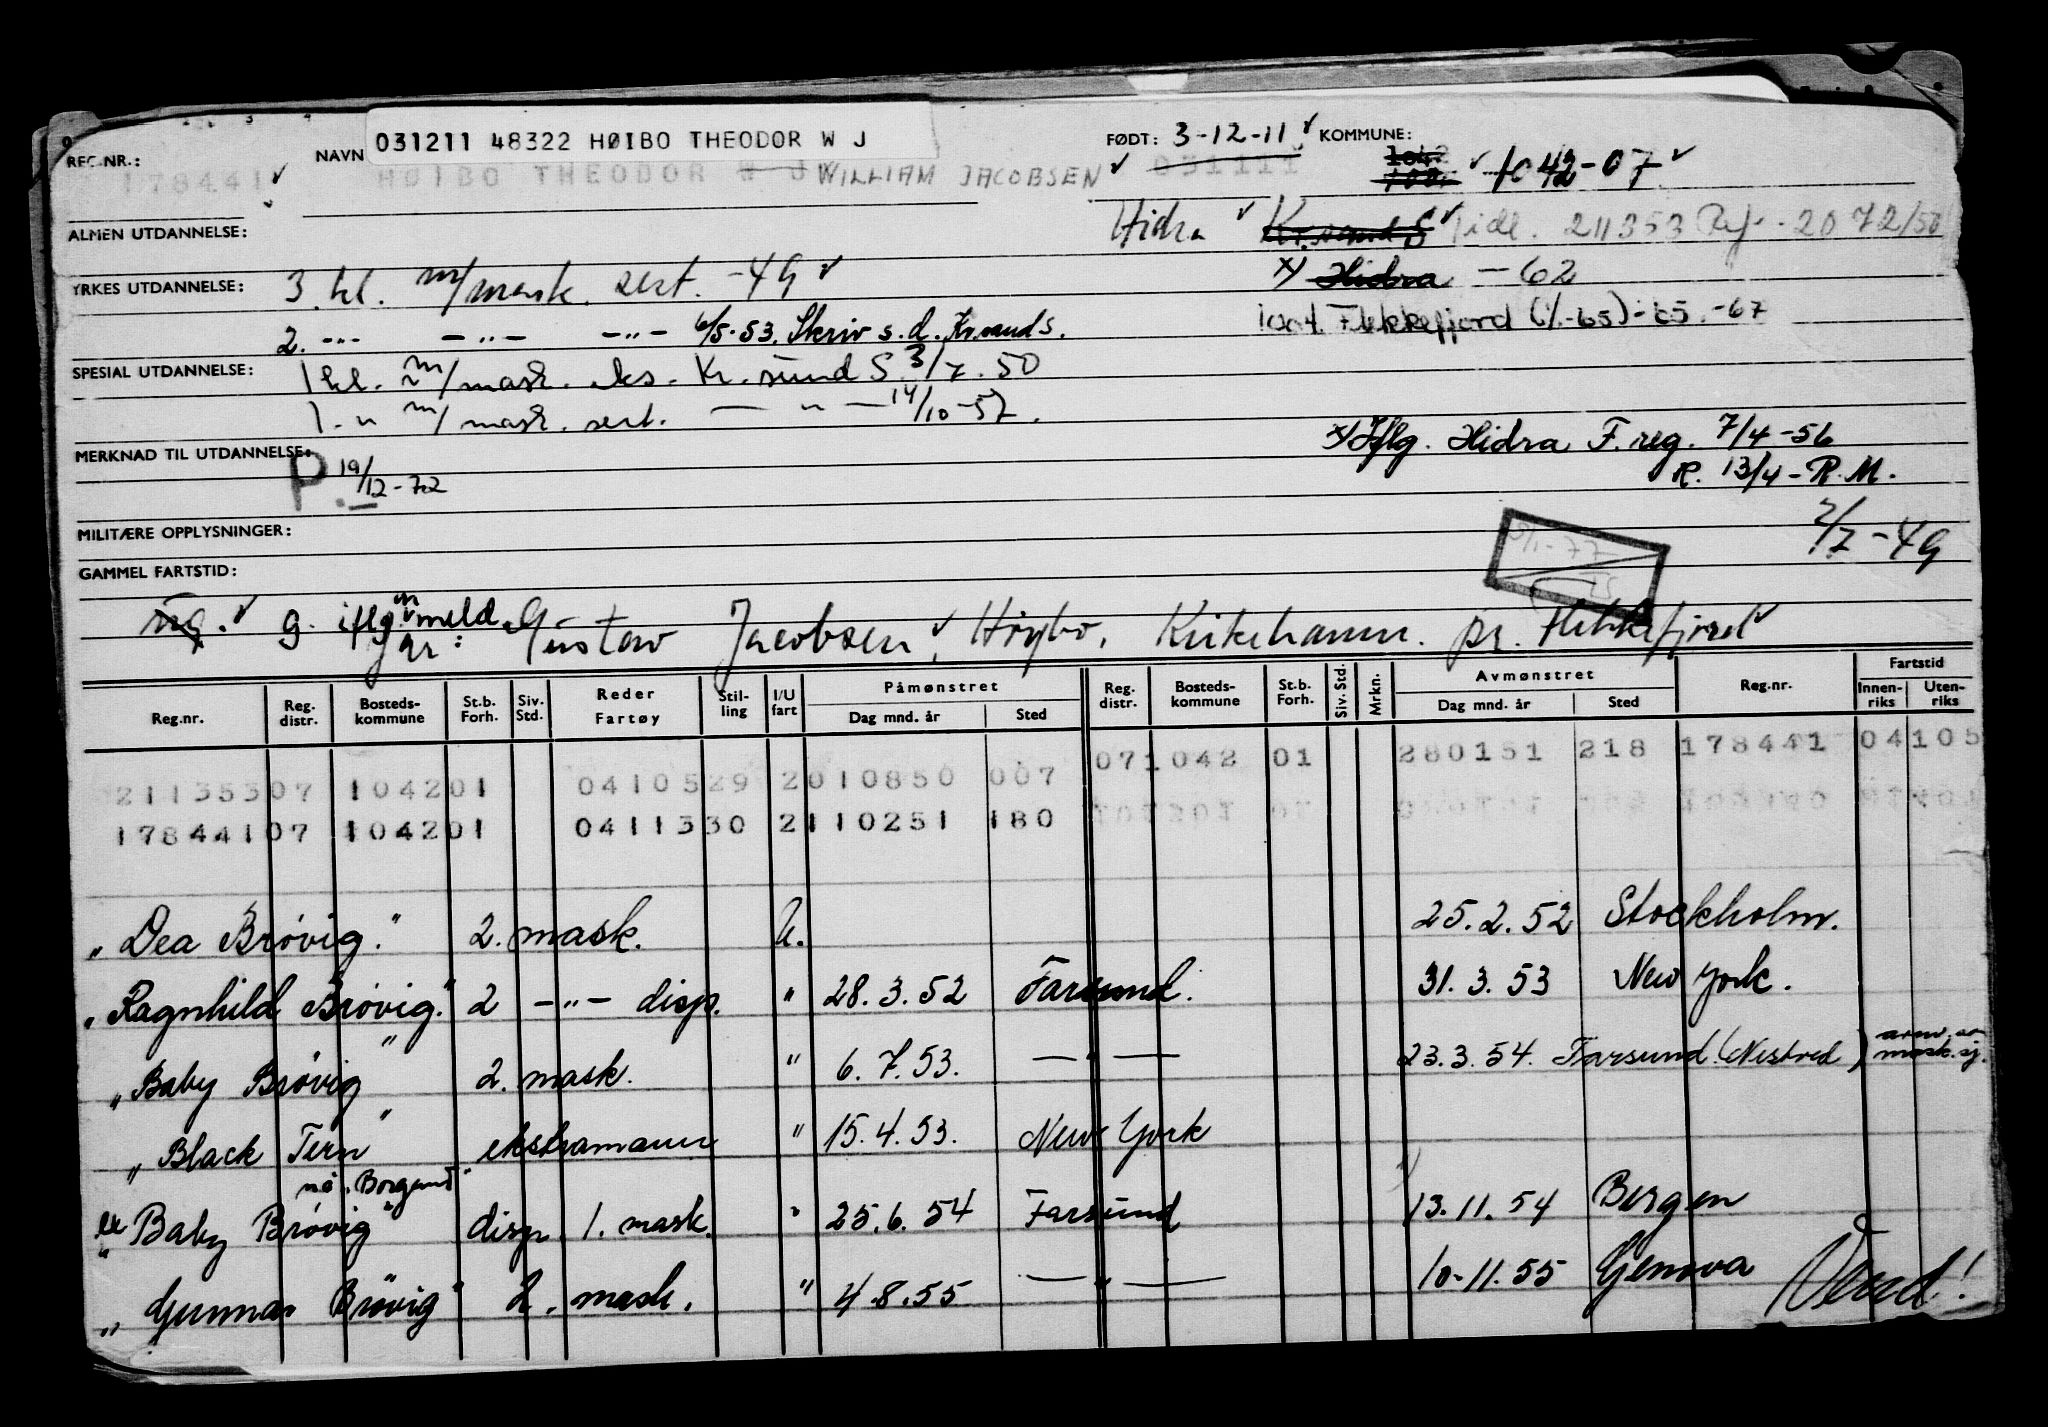 REG.NR.: NAVN 031211 48322 HØIBO THEODOR W J FØDT: 3-12-11 KOMMUNE:
178441 HØIBO THEODOR W J WILLIAM JACOBSEN 031111 1042-07
ALMEN UTDANNELSE: Hidra Kr.sand S tidl. 211353 Rf. 2072/50
YRKES UTDANNELSE: 3 kl. m/mask. sert. -49 x) Hidra - 62
2. -"- -"- -"- 6/5-53. Skriv s.d. Kr.sand S. Flekkefjord (1/1-65)-65 -67
SPESIAL UTDANNELSE: 1 kl. m/mask. eks. Kr.sund S. 3/7.50
1 -"- m/mask. sert. -"- 14/10-57.
MERKNAD TIL UTDANNELSE: x) Iflg. Hidra F.reg. 7/4-56
P. 19/12-72 R. 13/4-R.M.
MILITÆRE OPPLYSNINGER: 2/7-49
GAMMEL FARTSTID:
ug. g. iflg. meld. Gustav Jacobsen, Høybo, Kirkehamn. pr. Flekkefjord
Påmønstret Avmønstret Fartstid
Reg.nr. Reg. distr. Bosteds-kommune St.b. Forh. Siv. Std. Reder Fartøy Stil-ling I/U fart Dag mnd. år Sted Reg. distr. Bosteds-kommune St.b. Forh. Siv. Std. Mrkn. Dag mnd. år Sted Reg.nr. Innen-riks Uten-riks
21135307 104201 0410529 2010850 007 071042 01 280151 218 178441 04105
17844107 104201 0411330 2110251 180
"Dea Brøvig." 2. mask. U. 25.2.52 Stockholm.
"Ragnhild Brøvig." 2 -"- disp. " 28.3.52 Farsund. 31.3.53 New York.
"Baby Brøvig" 2. mask. " 6.7.53. -"- 23.3.54. Farsund. (Nestved) mask.sj.
"Black Tern" ekstramann " 15.4.53. New York
nå "Borgant"
ex "Baby Brøvig" disp. 1. mask. " 25.6.54 Farsund 13.11.54 Bergen
"Gunnar Brøvig" 2. mask. " 4.8.55 -"- 10-11.55 Genova Vend!